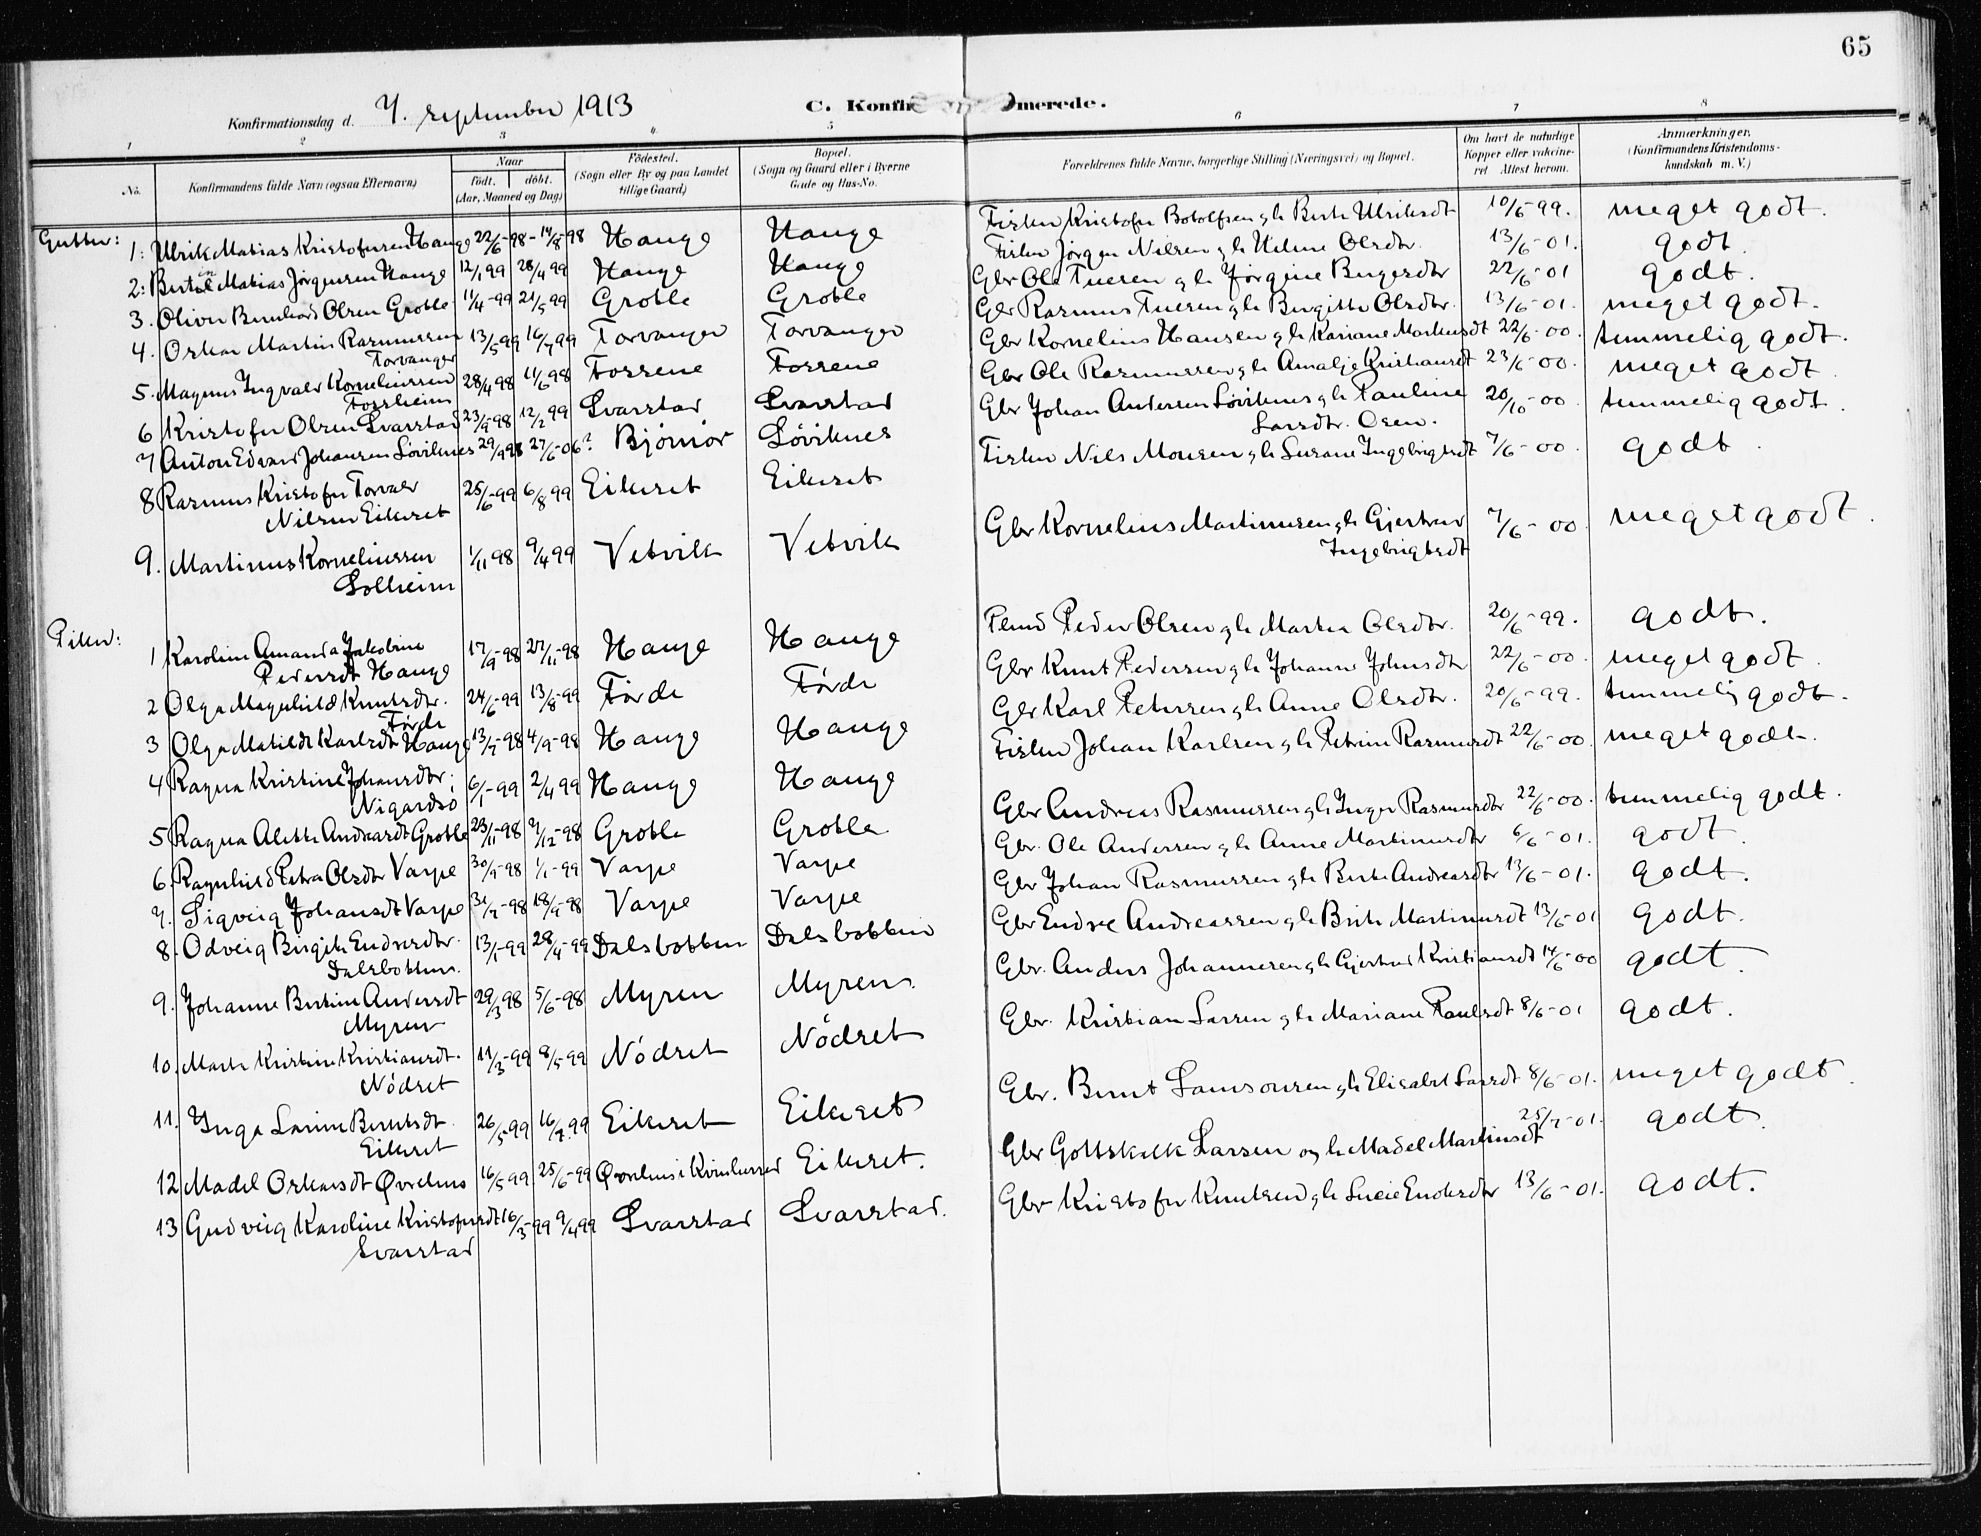 65
Konfirmationsdag d. 7. september 1913
C. Konfir merede.
1 2 3 4 5 6 7 8
No. Konfirmandens fulde Navn (ogsaa Efternavn) Naar født. døbt. (Aar, Maaned og Dag) Fødested. (Sogn eller By og paa Landet tillige Gaard) Bopæl. (Sogn og Gaard eller i Byerne Gade og Hus-No. Forældrenes fulde Navne, borgerlige Stilling (Næringsvei) og Bopæl. Om havt de naturlige Kopper eller vakcineret Attest herom. Anmærkninger. (Konfirmandens Kristendomskundskab m. V.)
Gutter:
1. Ulrik Matias Kristofersen Hauge 22/6-98 - 14/8-98 Hauge Hauge Fisker Kristofer Botolfsen g h Berte Ulriksdt 10/6-99. meget godt.
2. Matias Jørgensen Hauge 12/1 99 28/4 99 Hauge Hauge Fisker Jørgen Nilsen g h Helene Olsdtr. 13/6-01. godt
3. Oliver Bernhard Olsen Grotle 11/4-99 21/5 99 Grotle Grotle Gbr Ole Tuesen g h Jørgine Birgersdtr 22/6-01 godt.
4. Oskar Martin Rasmussen 13/5 99 16/7 99 Torvanger Torvanger Gbr Rasmus Tuesen g h Birgitte Olsdtr. 13/6-01. meget godt.
Torvanger
5. Magnus Ingvald Korneliussen 28/4 98 11/6 98 Fossene Fossene Gbr Kornelius Hansen g h Kariane Markusdt 22/6-00. temmelig godt.
Fossheim
6 Kristofer Olsen Svarstad 23/9 98 12/2 99 Svarstad Svarstad Gbr Ole Rasmussen g h Amalje Kristiansdt 23/6-00. meget godt.
7 Anton Edvard Johansen Løviknes 29/9 98 27/6-06? Bjørnør Løviknes Gbr Johan Andersen Løviknes g h Pauline 20/10-00. temmelig godt.
Larsdtr. Osen.
8 Rasmus Kristofer Torvald 25/6-99 6/8 99 Eikeset Eikeset Fisker Nils Monsen g h Susane Ingebrigtsdt 7/6-00. godt.
Nilsen Eikeset
9. Martinus Korneliussen 1/11 98 9/4 99 Vetvik Vetvik Gbr Kornelius Martinusen g h Gjertrud 7/6-00. meget godt.
Solheim Ingebrigtsdt
Piker:
1 Karoline Amanda Jakobine 17/9-98 27/11-98 Hauge Hauge Peder Olsen g h Martha Olsdtr. 20/6-99. godt.
Pedersdt Hauge
2 Olga Magnhild Knutsdtr. 24/6-99 13/8-99 Førde Førde Gbr Knut Pedersen g h Johanne Johnsdtr 22/6-00. meget godt.
Førde
3 Olga Matilde Karlsdt Hauge 13/7-98 4/9-98 Hauge Hauge Gbr Karl Petersen g h Anne Olsdtr. 20/6-99. temmelig godt.
4 Ragna Kristine Johansdtr. 6/1-99 2/4 99 Hauge Hauge Fisker Johan Karlsen g h Petrine Rasmusdt 22/6-00. meget godt.
Nigardsø
5 Ragna Alette Andreasdt Grotle 23/11-98 7/12-98 Grotle Grotle Gbr Andreas Rasmussen g h Inger Rasmusdtr 22/6-00. temmelig godt.
6. Ragnhild Petra Olsdtr Varpe 30/9-98 1/1-99 Varpe Varpe Gbr. Ole Andersen g h Anne Martinusdtr 6/6-01. godt.
7. Sigveig Johansdt Varpe 31/7-98 18/9-98 Varpe Varpe Gbr Johan Rasmussen g h Berte Andreasdtr 13/6-01. godt.
8. Odveig Birgite Endresdtr. 13/1-99 28/4-99 Dalsbotten Dalsbotten Gbr Endre Andreassen g h Brite Martinusdt 13/6-01 godt.
Dalsbotten.
9. Johanne Bertine Andersdt 29/3 98 5/6-98 Myren Myren. Gbr. Anders Johannesen g h Gjertrud Kristiansdt 14/6-00 godt.
Myren
10. Marte Kristine Kristiansdt. 11/3-99 8/5 99 Nødset Nødset Gbr. Kristian Larsen g h Mariane Paulsdt 8/6-01 godt.
Nødset
11. Inga Larine Berntsdt. 26/5 99 16/7.99 Eikeset Eikeset Gbr. Bernt Samsonsen g h Elisabet Larsdt 8/6-01. meget godt.
Eikeset
12 Madel Oskarsdt Øvrelius 16/5 99 25/6-99 Eikeset. Gbr Gottskalk Larsen og h Madel Martinsdt 25/7-01. godt.
13 Gudveig Karoline Kristofersdt 16/3-99 9/4 99 Svarstad Svarstad. Gbr Kristofer Knutsen g h Lucie Endresdtr 13/6-01. godt.
Svarstad